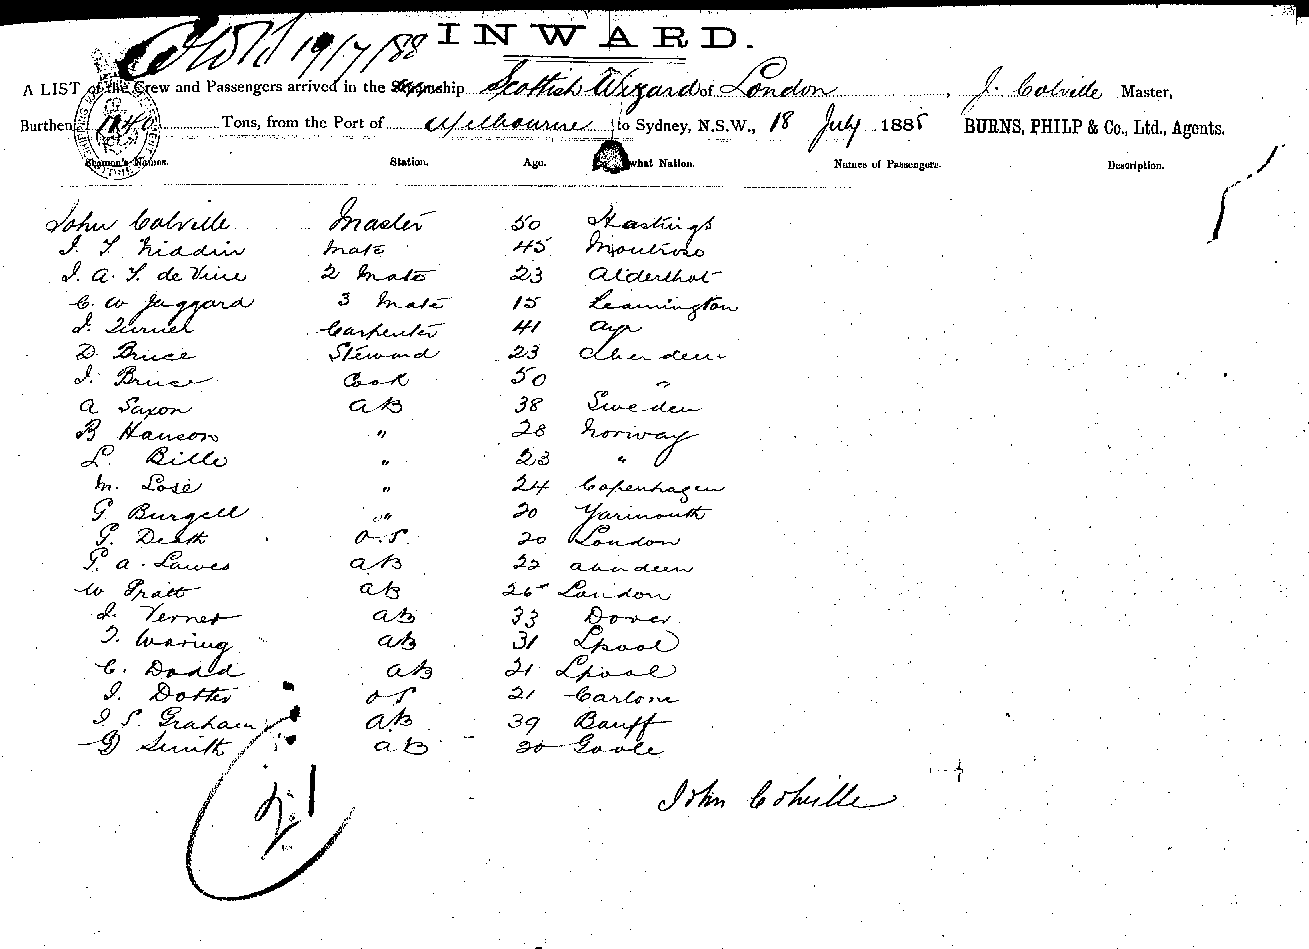 19/7/88 INWARD.
A LIST of the Crew and Passengers arrived in the Scottish Wizard of London, J. Colville Master,
Burthen 1040 Tons, from the Port of Melbourne to Sydney, N.S.W., 18 July 1888 BURNS, PHILP & Co., Ltd., Agents.
Seamen's Names. Station. Age. Of what Nation. Names of Passengers. Description.
John Colville Master 50 Hastings
J. T. Niddrie Mate 45 Montrose
J. A. S. de Vine 2 Mate 23 Aldershot
C. W Jaggard 3 Mate 15 Leamington
J. Turner Carpenter 41 Ayr
D. Bruce Steward 23 Aberdeen
J. Bruce Cook 50 "
A Saxon AB 38 Sweden
B Hanson " 28 Norway
L. Bille " 23 "
M. Lose " 24 Copenhagen
G Burgell " 20 Yarmouth
G. Death O.S. 20 London
G. A. Lawes AB 22 Aberdeen
W Pratt AB 26 London
J. Verner AB 33 Dover
T. Waring AB 31 Lpool
C. Dodd AB 21 Lpool
J. Dotter OS 21
J. S. Graham AB 39 Banff
G Smith AB 20 Goole
John Colville
21